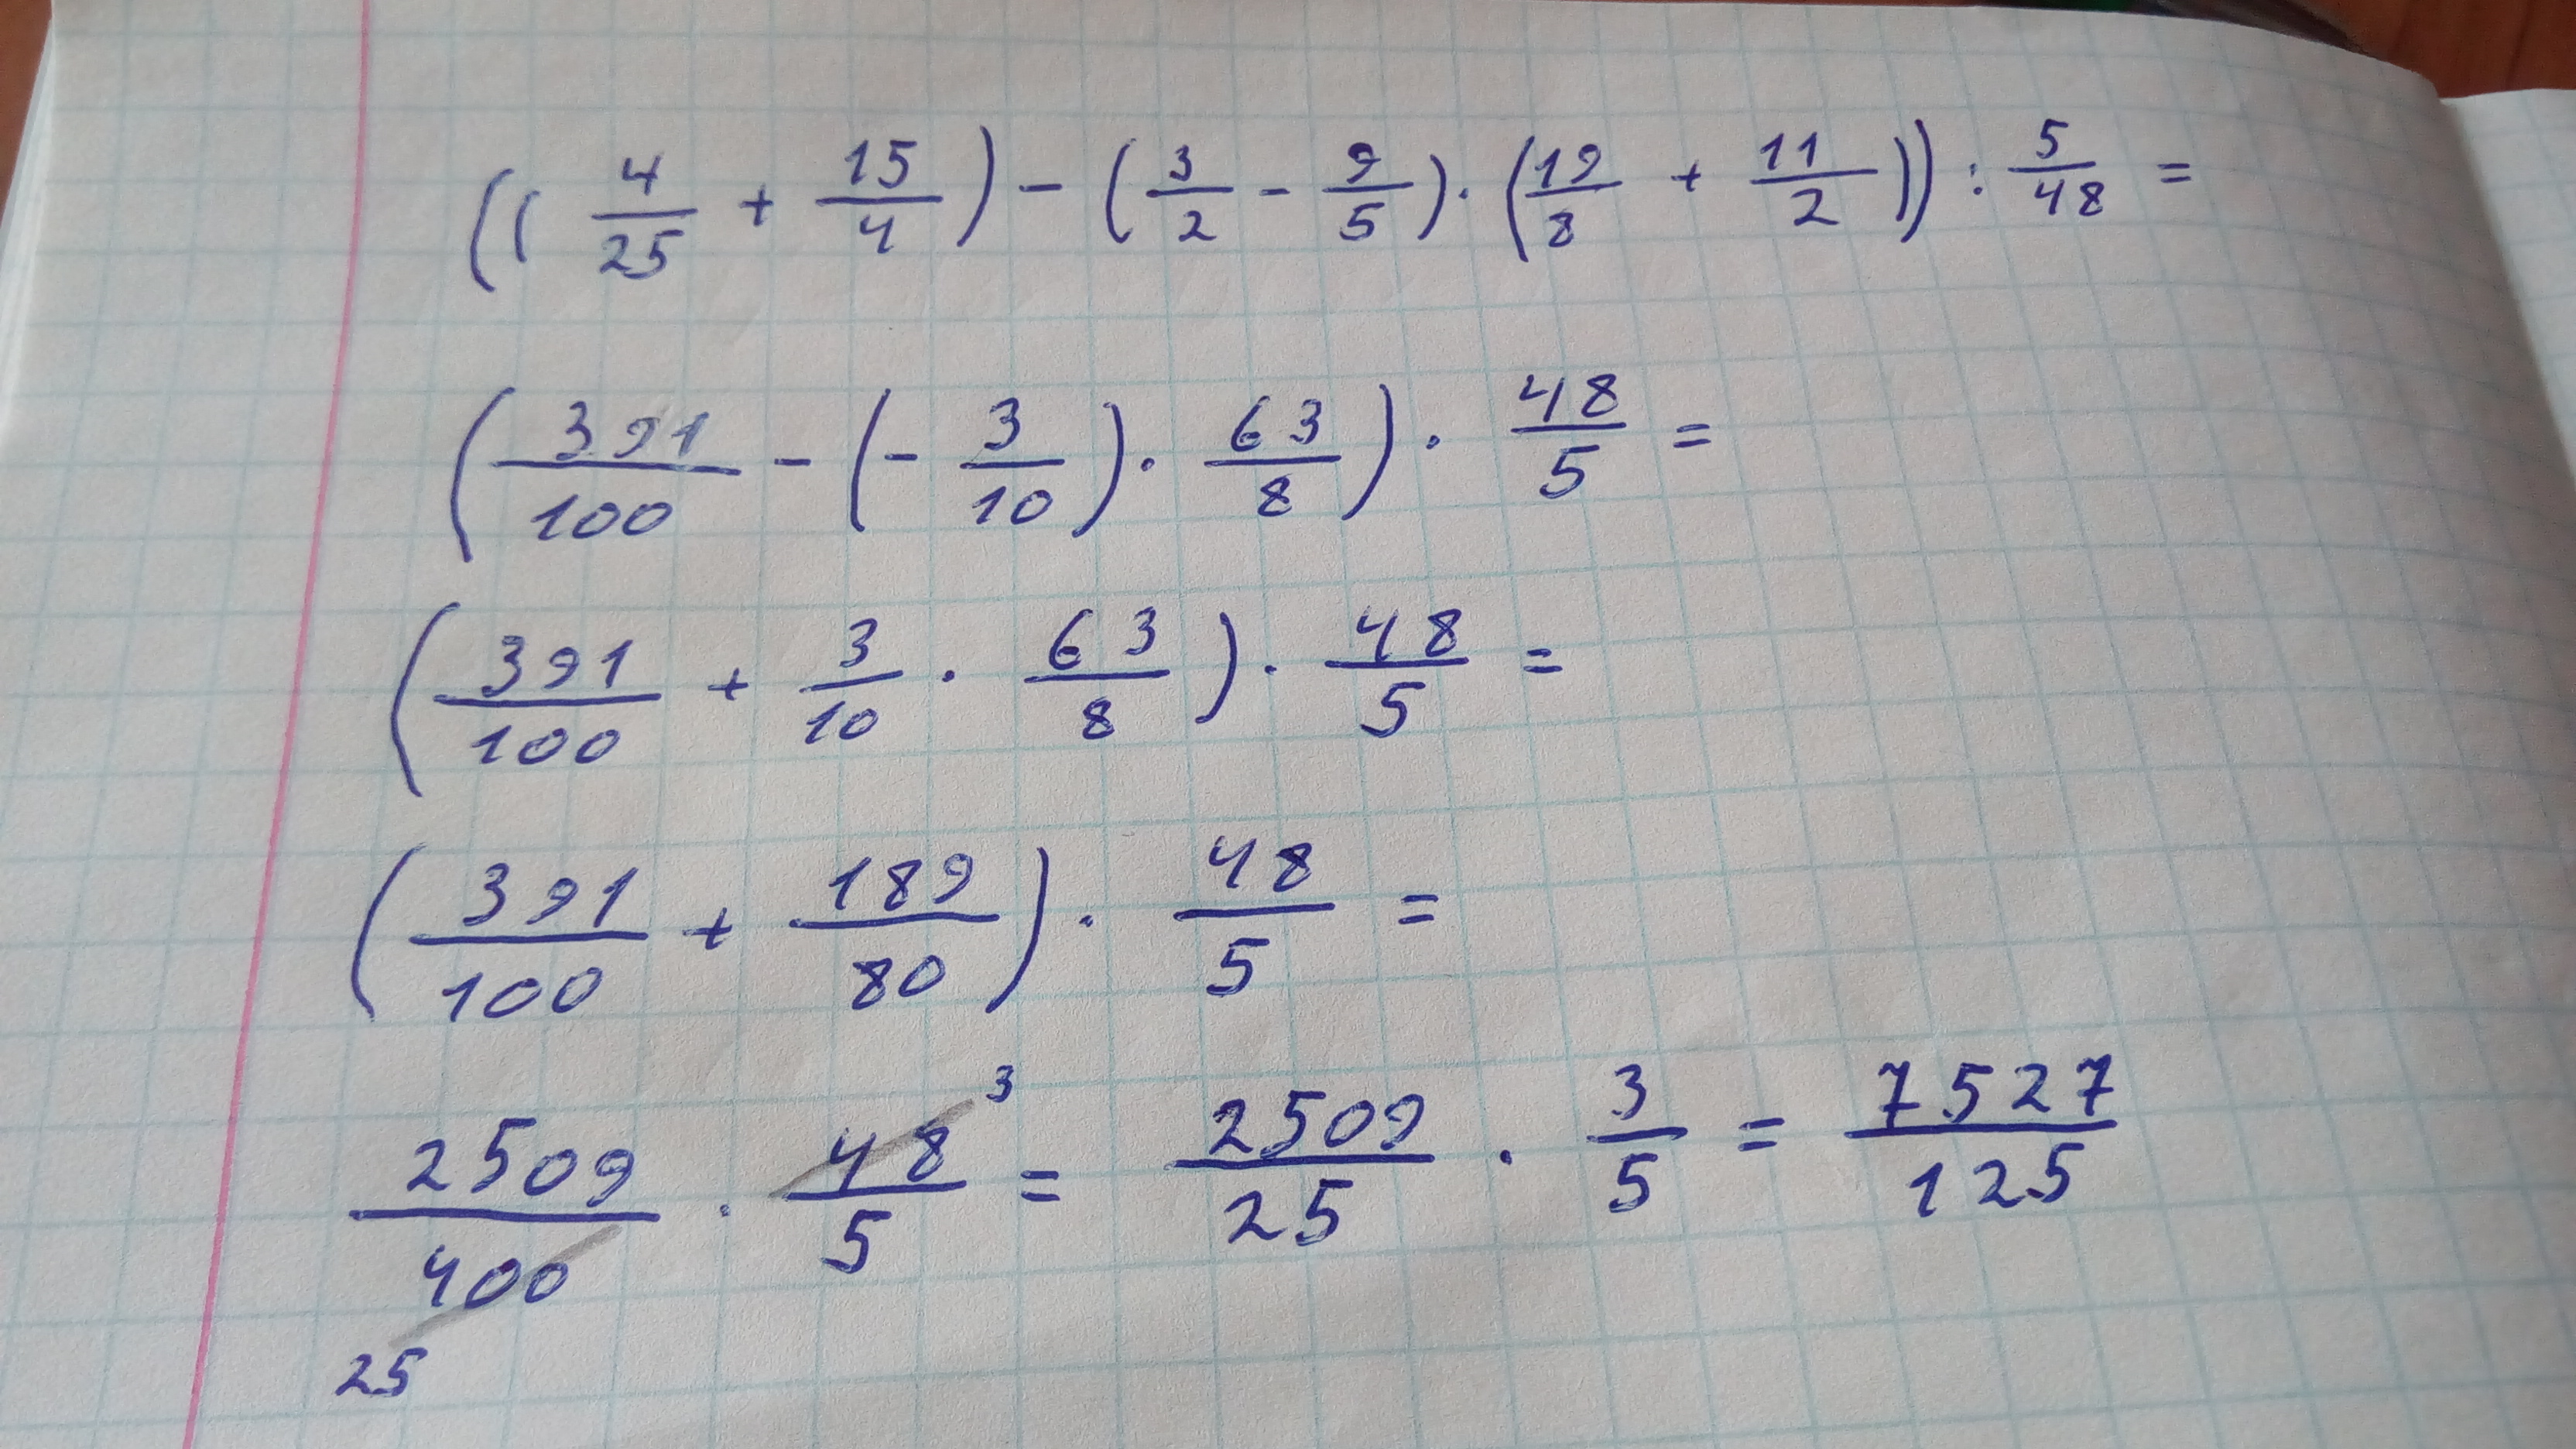 ((4/25 + 15/4) - (3/2 - 9/5) · (19/8 + 11/2)) : 5/48 =
(391/100 - (-3/10) · 63/8) · 48/5 =
(391/100 + 3/10 · 63/8) · 48/5 =
(391/100 + 189/80) · 48/5 =
2509/400 25 · 48 3/5 = 2509/25 · 3/5 = 7527/125